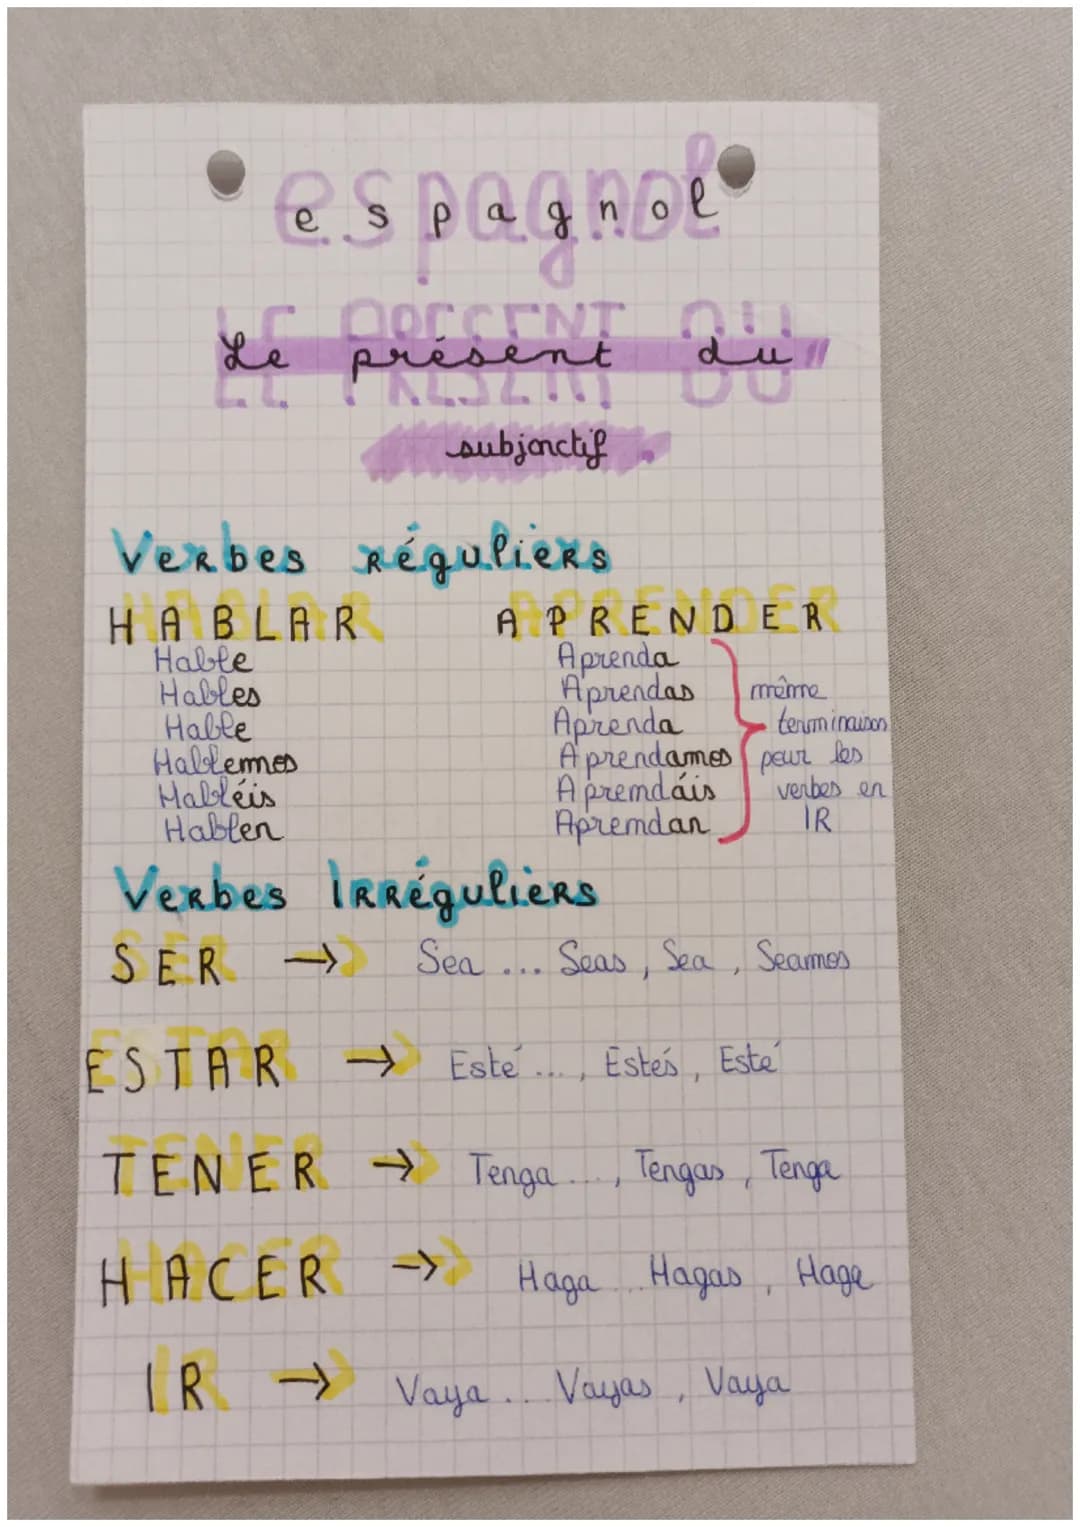 espagnol
Le présent du
subjonctif
Verbes réguliers
HABLAR APRENDER
Hable Aprenda
Hables Aprendas même
Hable Aprenda terminaison
Hablemos Aprendamos pour les
Habléis Aprendáis verbes en
Hablen Aprendan IR
Verbes Irréguliers
SER → Sea ... Seas, Sea, Seamos
ESTAR → Esté ..., Estés, Esté
TENER → Tenga ..., Tengas, Tenga
HACER → Haga ... Hagas, Haga
IR → Vaya ... Vayas, Vaya